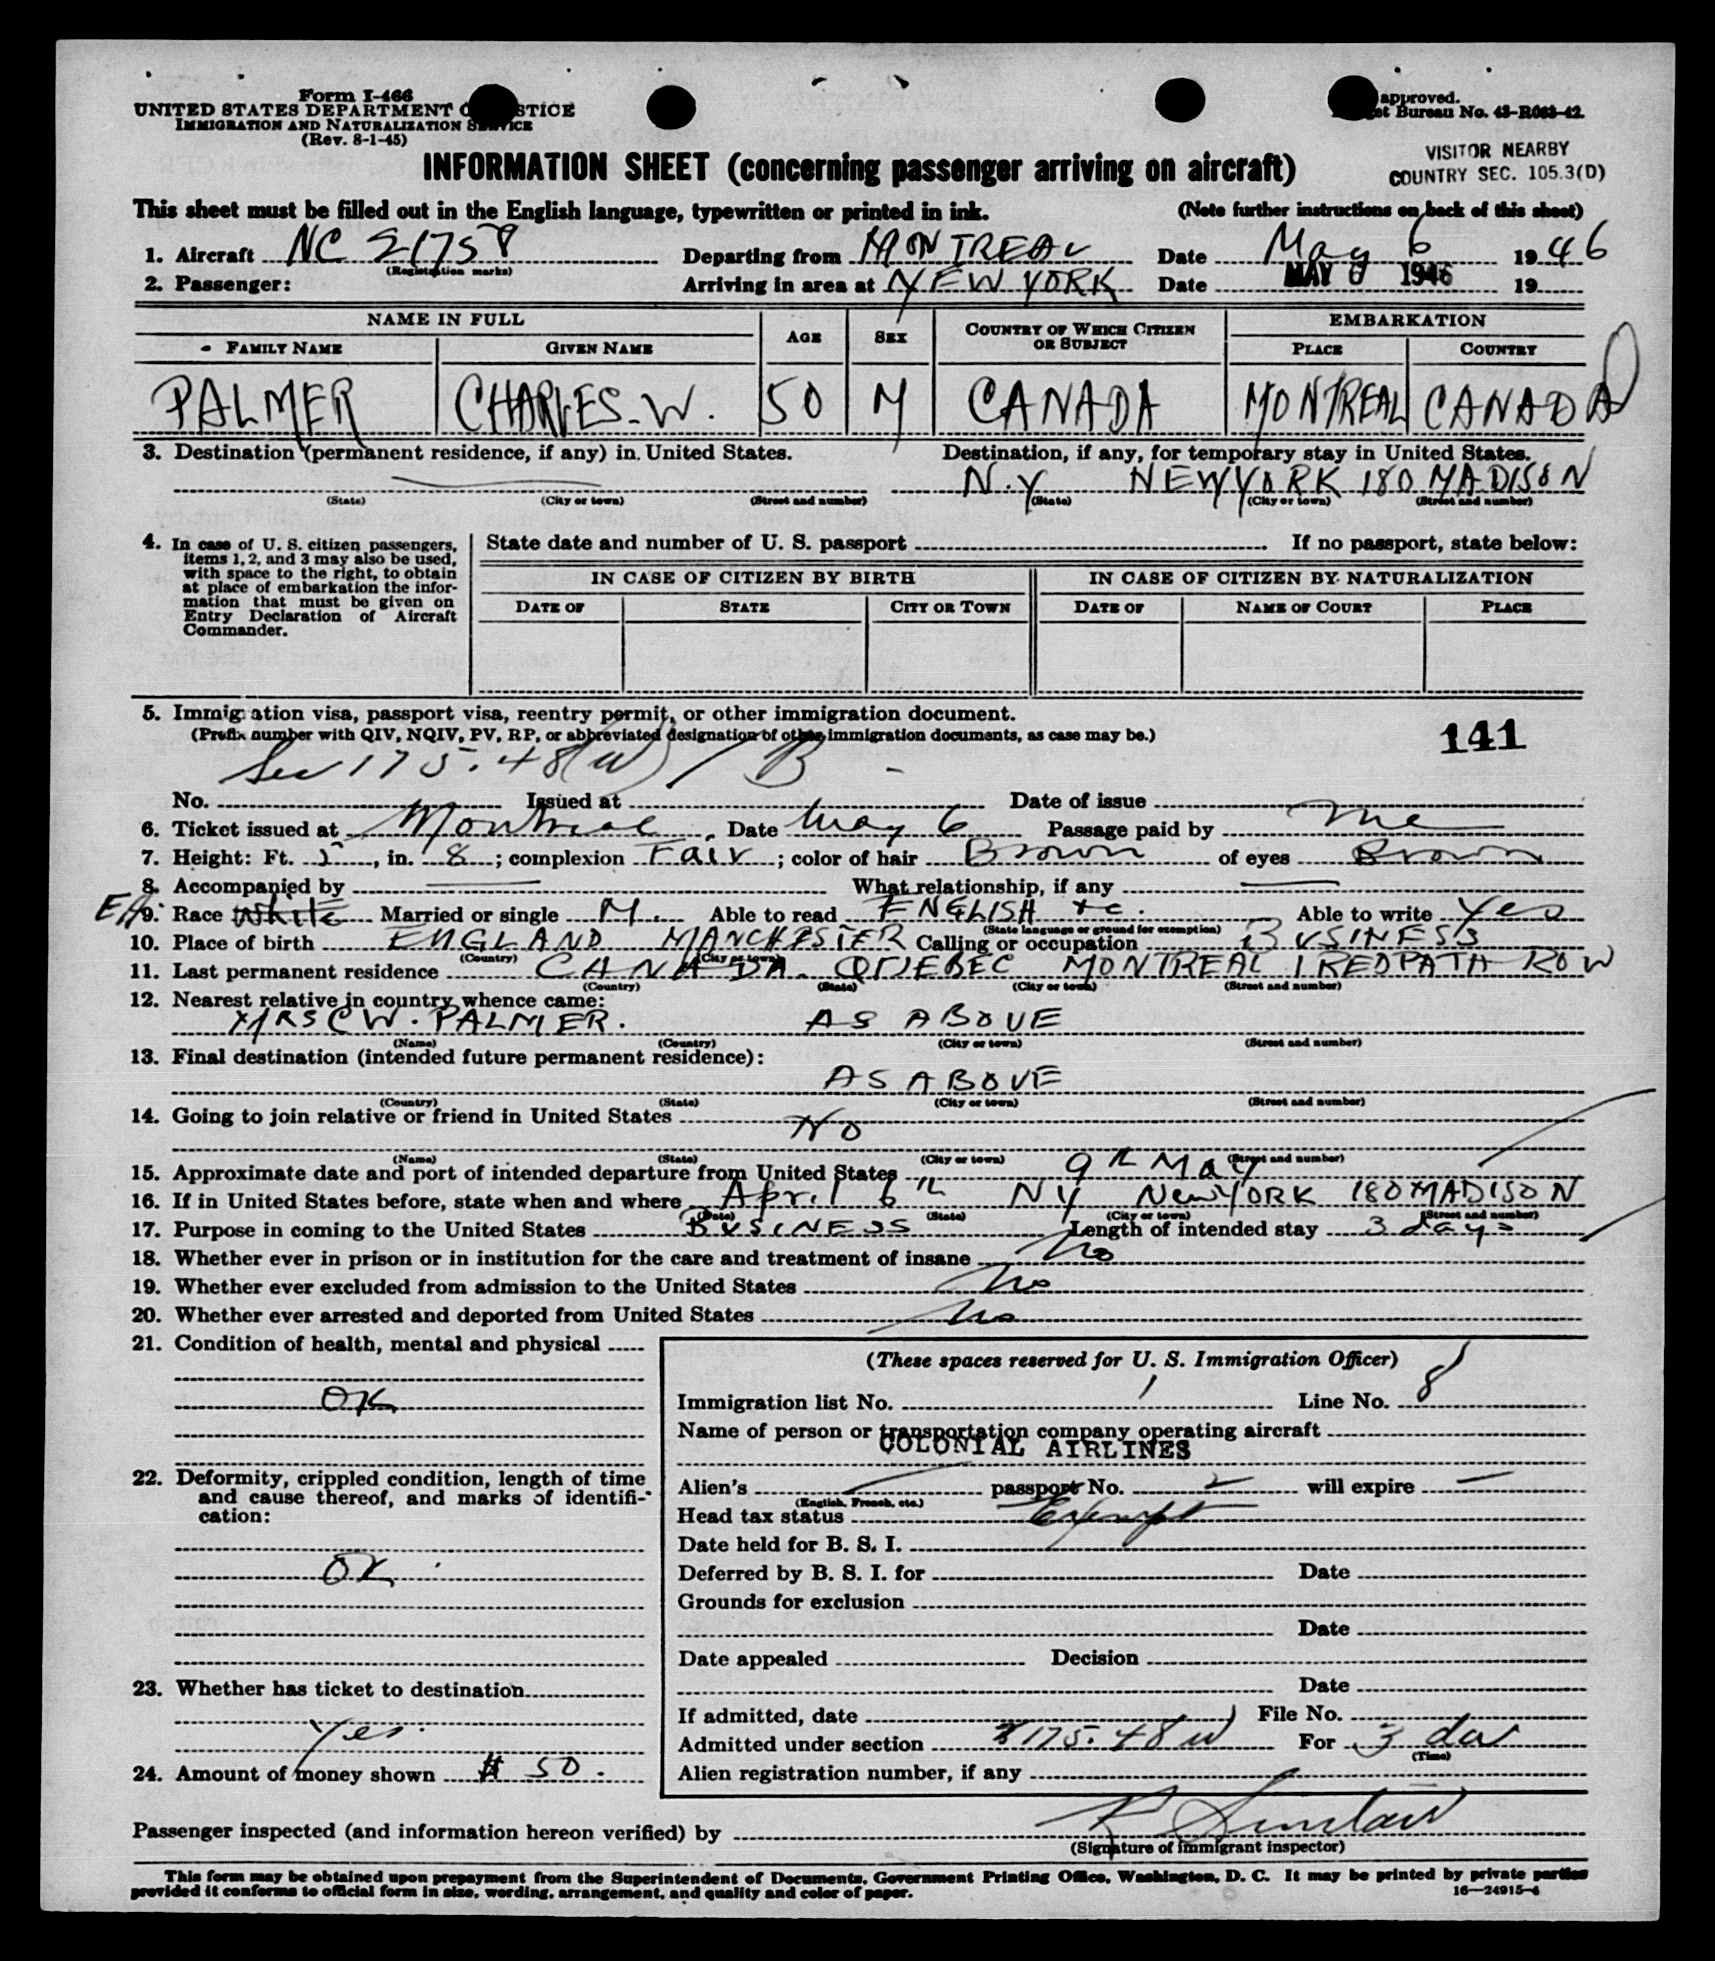 Form I-466
UNITED STATES DEPARTMENT
IMMIGRATION AND NATURALIZATION SERVICE
(Rev. 8-1-45)
approved.
Bureau No. 43-R063-42.
VISITOR NEARBY
COUNTRY SEC. 105.3(D)
INFORMATION SHEET (concerning passenger arriving on aircraft)
This sheet must be filled out in the English language, typewritten or printed in ink. (Note further instructions on back of this sheet)
1. Aircraft NC 21758 Departing from MONTREAL Date May 6 1946
(Registration marks)
2. Passenger: Arriving in area at NEW YORK Date MAY 6 1946 19
NAME IN FULL AGE SEX COUNTRY OF WHICH CITIZEN OR SUBJECT EMBARKATION
FAMILY NAME GIVEN NAME PLACE COUNTRY
PALMER CHARLES-W. 50 M CANADA MONTREAL CANADA
3. Destination (permanent residence, if any) in United States. Destination, if any, for temporary stay in United States.
N.Y NEW YORK 180 MADISON
(State) (City or town) (Street and number) (State) (City or town) (Street and number)
4. In case of U. S. citizen passengers, items 1, 2, and 3 may also be used, with space to the right, to obtain at place of embarkation the information that must be given on Entry Declaration of Aircraft Commander.
State date and number of U. S. passport If no passport, state below:
IN CASE OF CITIZEN BY BIRTH IN CASE OF CITIZEN BY NATURALIZATION
DATE OF STATE CITY OR TOWN DATE OF NAME OF COURT PLACE
5. Immigration visa, passport visa, reentry permit, or other immigration document.
(Prefix number with QIV, NQIV, PV, RP, or abbreviated designation of other immigration documents, as case may be.)
141
Sec 175.48(W) / B -
No. Issued at Date of issue
6. Ticket issued at Montreal Date May 6 Passage paid by me
7. Height: Ft. 5, in. 8; complexion Fair; color of hair Brown of eyes Brown
8. Accompanied by What relationship, if any
9. Race White Married or single M. Able to read ENGLISH Able to write Yes
(State language or ground for exemption)
10. Place of birth ENGLAND MANCHESTER Calling or occupation BUSINESS
(Country) (City or town)
11. Last permanent residence CANADA. QUEBEC MONTREAL 1 REDPATH ROW
(Country) (State) (City or town) (Street and number)
12. Nearest relative in country whence came:
MRS C W. PALMER. AS ABOVE
(Name) (Country) (City or town) (Street and number)
13. Final destination (intended future permanent residence):
AS ABOVE
(Country) (State) (City or town) (Street and number)
14. Going to join relative or friend in United States
No
(Name) (State) (City or town) (Street and number)
15. Approximate date and port of intended departure from United States 9th May
16. If in United States before, state when and where April 6th NY New YORK 180 MADISON
(Date) (State) (City or town) (Street and number)
17. Purpose in coming to the United States BUSINESS Length of intended stay 3 days
18. Whether ever in prison or in institution for the care and treatment of insane No
19. Whether ever excluded from admission to the United States No
20. Whether ever arrested and deported from United States No
21. Condition of health, mental and physical
OK
22. Deformity, crippled condition, length of time and cause thereof, and marks of identification:
OK
23. Whether has ticket to destination
Yes.
24. Amount of money shown $ 50.
(These spaces reserved for U. S. Immigration Officer)
Immigration list No. 1 Line No. 8
Name of person or transportation company operating aircraft
COLONIAL AIRLINES
Alien's passport No. will expire
(English, French, etc.)
Head tax status Exempt
Date held for B. S. I.
Deferred by B. S. I. for Date
Grounds for exclusion
Date
Date appealed Decision
Date
If admitted, date File No.
Admitted under section 175.48 W For 3 da
(Time)
Alien registration number, if any
Passenger inspected (and information hereon verified) by R Sinclair
(Signature of immigrant inspector)
This form may be obtained upon prepayment from the Superintendent of Documents, Government Printing Office, Washington, D. C. It may be printed by private parties
provided it conforms to official form in size, wording, arrangement, and quality and color of paper.
16—24915-4